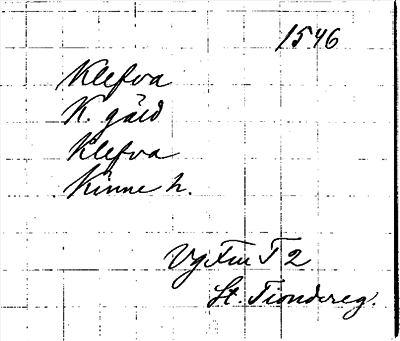 1546
Klefva
K. gäld
Klefva
Kinne h.
Vg Fm T 2
St. Tiondereg.